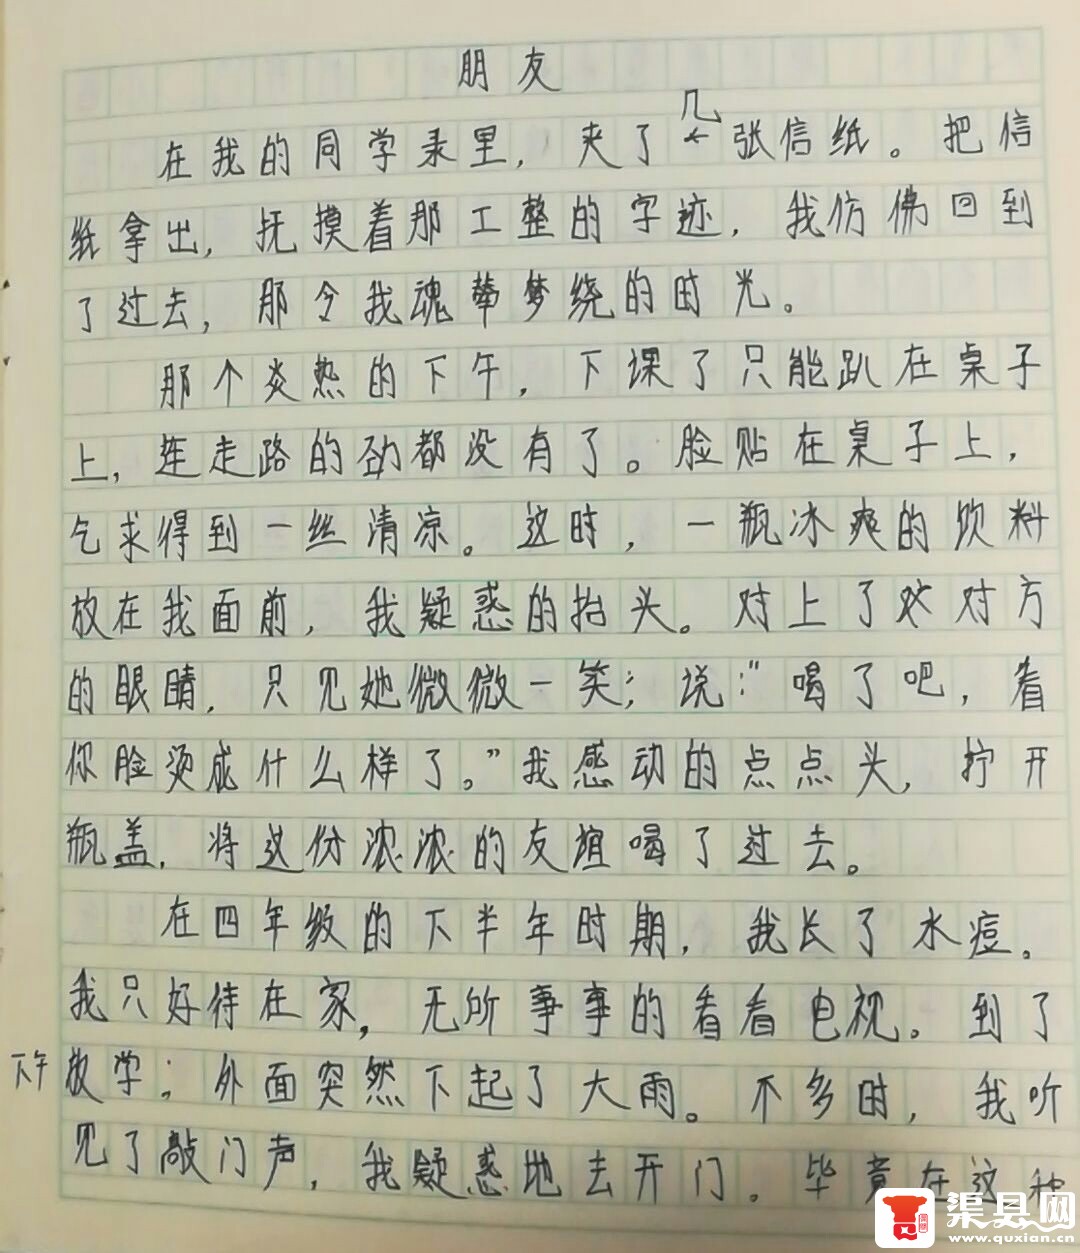 朋友
在我的同学录里，夹了几张信纸。把信
纸拿出，抚摸着那工整的字迹，我仿佛回到
了过去，那令我魂牵梦绕的时光。
那个炎热的下午，下课了只能趴在桌子
上，连走路的劲都没有了。脸贴在桌子上，
乞求得到一丝清凉。这时，一瓶冰爽的饮料
放在我面前，我疑惑的抬头。对上了对方
的眼睛，只见她微微一笑；说：“喝了吧，看
你脸烫成什么样了。”我感动的点点头，拧开
瓶盖，将这份浓浓的友谊喝了过去。
在四年级的下半年时期，我长了水痘。
我只好待在家，无所事事的看看电视。到了
下午放学；外面突然下起了大雨。不多时，我听
见了敲门声，我疑惑地去开门。毕竟在这种
渠县网
www.quxian.cn